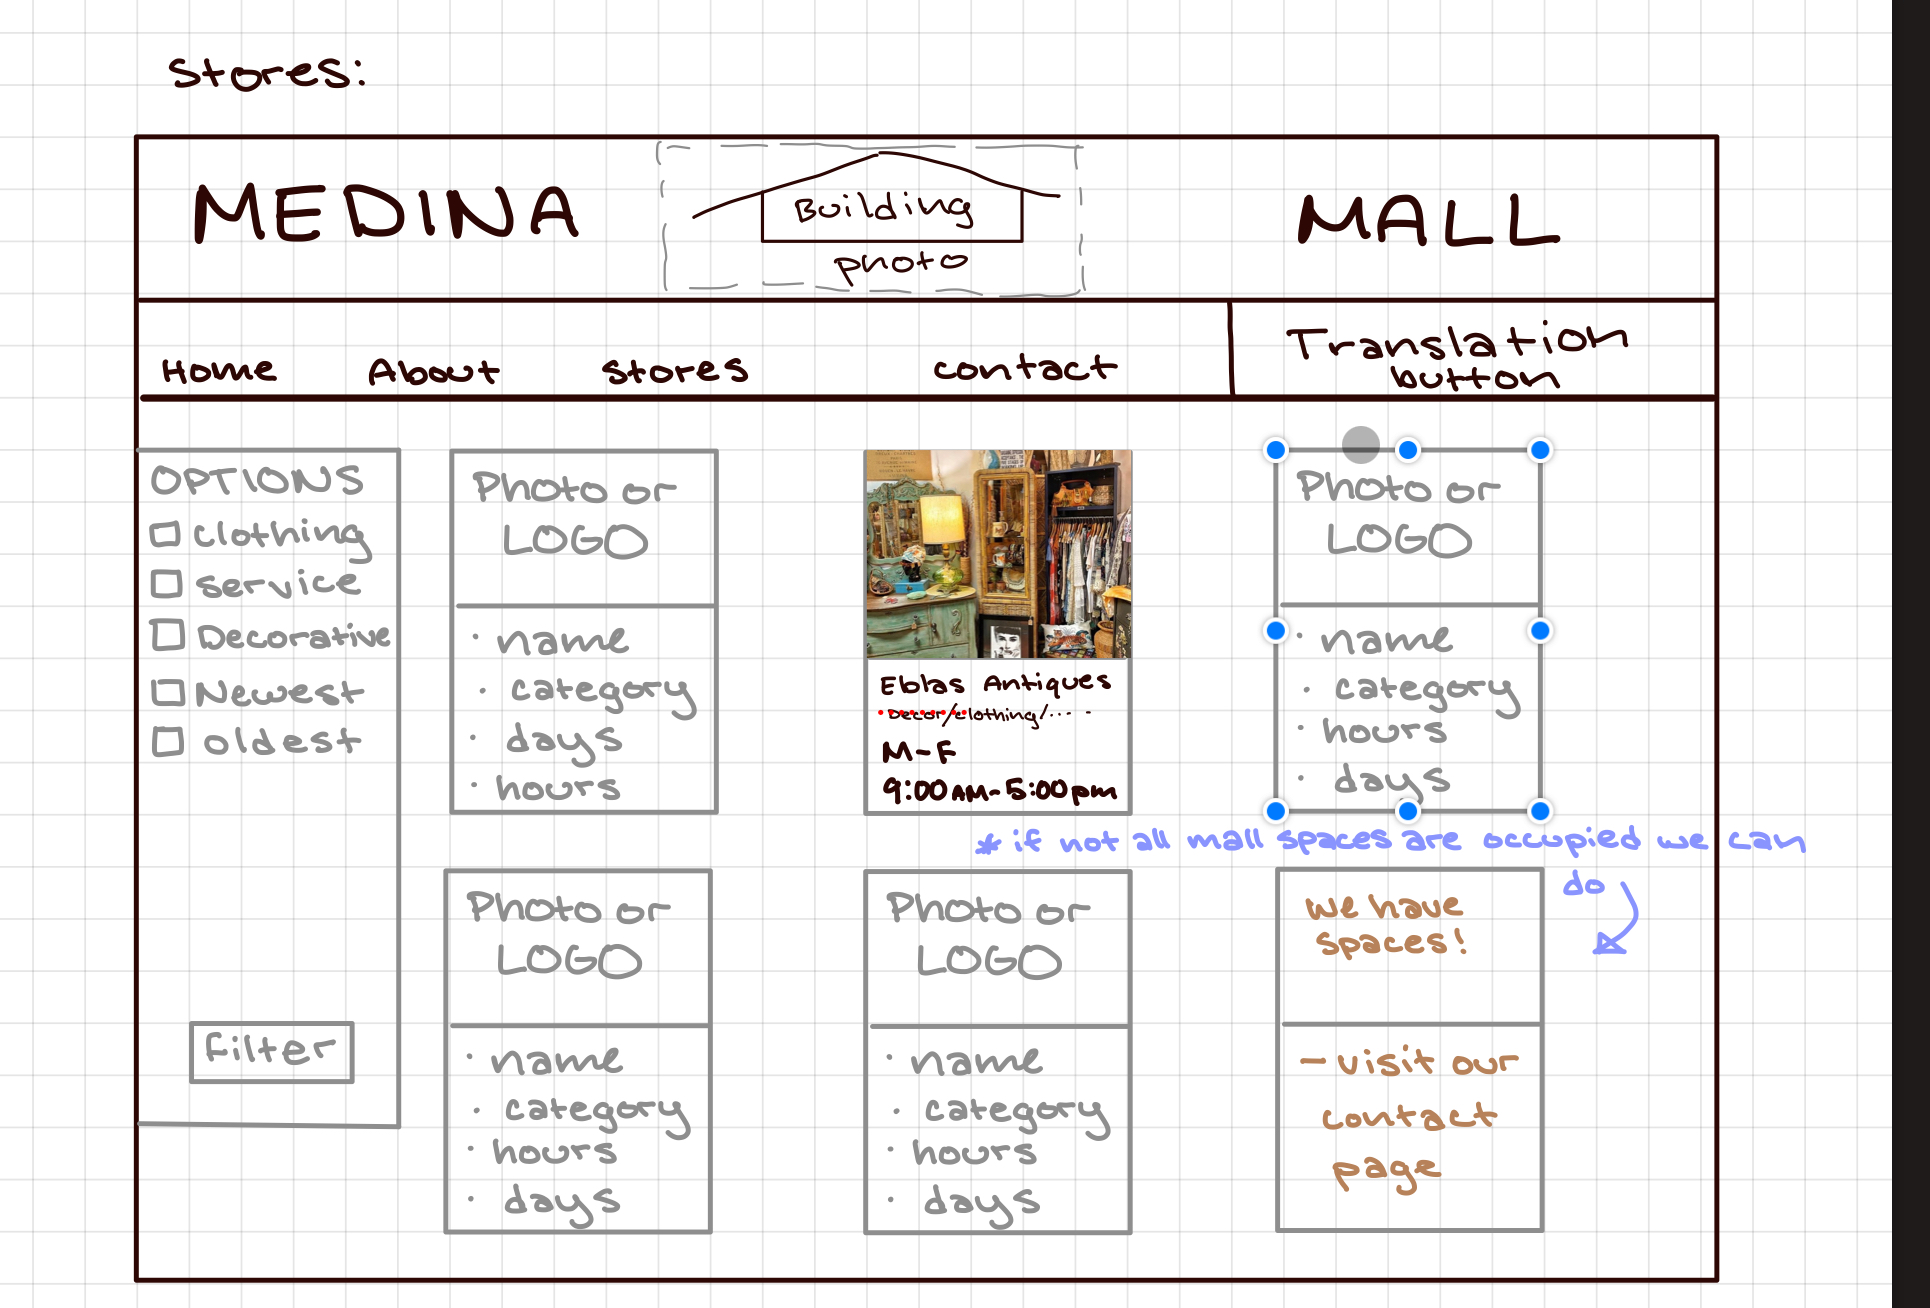 Stores:
MEDINA
Building
photo
MALL
Home
About
stores
contact
Translation
button
OPTIONS
clothing
service
Decorative
Newest
oldest
Filter
Photo or
LOGO
· name
· category
· days
· hours
Eblas Antiques
Decor/clothing/...
M-F
9:00AM-5:00pm
Photo or
LOGO
· name
· category
· hours
· days
* if not all mall spaces are occupied we can
do
Photo or
LOGO
· name
· category
· hours
· days
Photo or
LOGO
· name
· category
· hours
· days
we have
spaces!
- visit our
contact
page